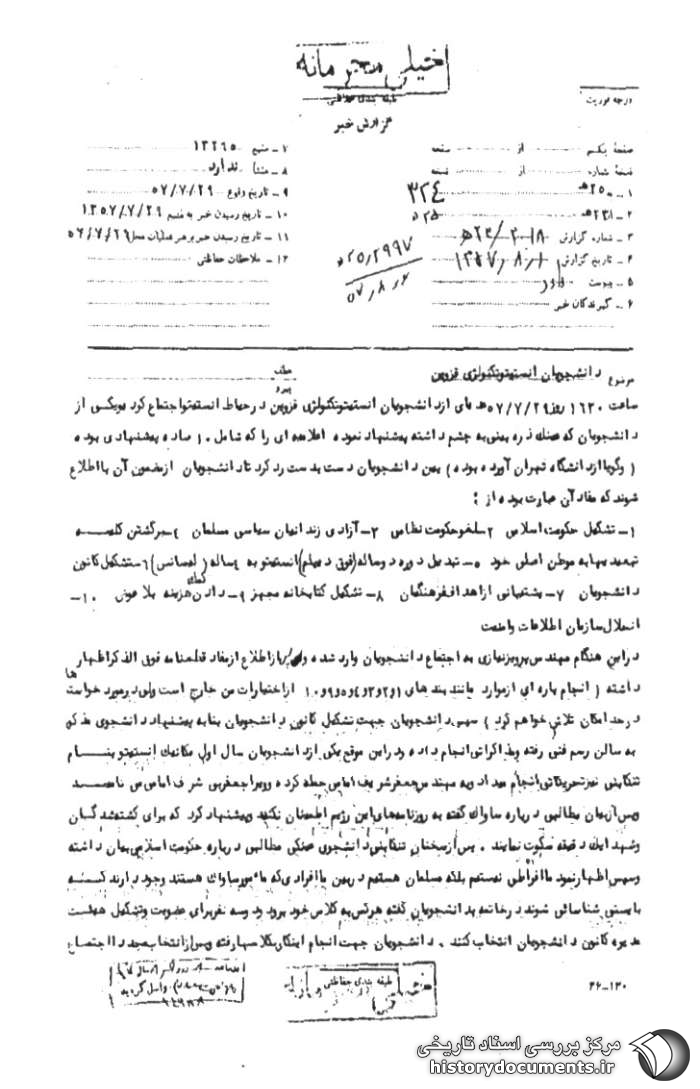 خیلی محرمانه
طبقه بندی حفاظتی
گزارش خبر
درجه فوریت
صفحه یکم از صفحه
نسخه شماره از نسخه
۱ – به ۲۵۰ه‍ ۳۲۴
۲ – ۲۳۸ه‍
۳ – شماره گزارش
۴ – تاریخ گزارش
۵ – پیوست
۶ – گیرندگان خبر
۷ – منبع ۱۳۲۶۵
۸ – منشأ ندارد
۹ – تاریخ وقوع ۵۷/۷/۲۹
۱۰ – تاریخ رسیدن خبر به منبع ۱۳۵۷/۷/۲۹
۱۱ – تاریخ رسیدن خبر برهبر عملیات محل ۵۷/۷/۲۹
۱۲ – ملاحظات حفاظتی
۲۹۹۷
۵۷/۸/۶
موضوع دانشجویان انستیتوتکنولوژی قزوین
عطف
پیرو
ساعت ۱۶۳۰ روز ۵۷/۷/۲۹ از دانشجویان انستیتوتکنولوژی قزوین در حیاط انستیتو اجتماع کرد یکی از
دانشجویان که عینک ذره بینی به چشم داشته پیشنهاد نموده اعلامیه ای را که شامل ۱۰ ماده پیشنهادی بوده
( و گویا از دانشگاه تهران آورده بوده ) بین دانشجویان دست بدست رد کرد تا دانشجویان از مضمون آن با اطلاع
شوند که مفاد آن عبارت بوده از :
۱– تشکیل حکومت اسلامی ۲– لغو حکومت نظامی ۳– آزادی زندانیان سیاسی مسلمان ۴– برگشتن کلیه
تبعیدیها به موطن اصلی خود ۵– تبدیل دوره دو ساله (فوق دیپلم) انستیتو به ۴ ساله ( لیسانس ) ۶– تشکیل کانون
دانشجویان ۷– پشتیبانی از اهداف فرهنگیان ۸– تشکیل کتابخانه مجهز ۹– دادن کمک هزینه بلا عوض ۱۰–
انحلال سازمان اطلاعات و امنیت
در این هنگام مهندس پرویز نیازی به اجتماع دانشجویان وارد شده و پس از اطلاع از مفاد قطعنامه فوق الذکر اظهارها
داشته ( انجام پاره ای از موارد مانند بند های ۱و۲و۳و۴و۵و۹و۱۰ از اختیارات من خارج است ولی در مورد خواست
در حد امکان تلاش خواهم کرد ) سپس دانشجویان جهت تشکیل کانون دانشجویان بنا به پیشنهاد دانشجوی مذکور
به سالن رسم فنی رفته و مذاکراتی انجام داده و در این موقع یکی از دانشجویان سال اول مکانیک انستیتو بنام
تنکابنی نیز تحریکاتی انجام میداد و به مهندس جعفر شریف امامی حمله کرده و ویرا جعفر بی شرف امامی نامید
و پس از بیان مطالبی درباره ساواک گفته به روزنامه های این رژیم اطمینان نکنید و پیشنهاد کرد که برای کشته شدگان
و شهدا یک دقیقه سکوت نمایند . پس از سخنان تنکابنی دانشجوی عینکی مطالبی درباره حکومت اسلامی بیان داشته
و سپس اظهار نمود ما افراطی نیستیم بلکه مسلمان هستیم در بین ما افرادی که مامور ساواک هستند وجود دارند که
بایستی شناسائی شوند در خاتمه به دانشجویان گفته هر کس به کلاس خود برود و دو سه نفر برای عضویت و تشکیل هیئت
مدیره کانون دانشجویان انتخاب کنند . دانشجویان جهت انجام اینکار بکلاسها رفته و پس از انتخاب مجددا اجتماع
۲۶–۱۳۰
طبقه بندی حفاظتی
خیلی محرمانه
مرکز بررسی اسناد تاریخی
historydocuments.ir